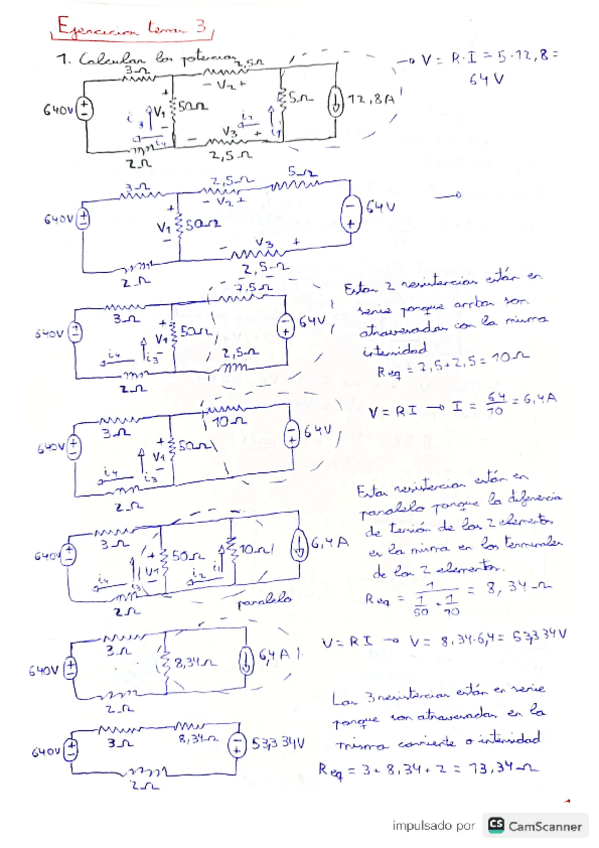 Ejercicios tema 3
1. Calcular las potencias
3Ω
2,5Ω
- V2 +
640V
V1
50Ω
5Ω
12,8A
i3
i4
i2
i1
V3
2Ω
2,5Ω
→ V = R·I = 5·12,8 =
64V
3Ω
2,5Ω
5Ω
- V2 +
640V
V1
50Ω
64V
V3
2Ω
2,5Ω
7,5Ω
3Ω
640V
V1
50Ω
64V
i4
i3
2,5Ω
2Ω
Estas 2 resistencias están en
serie porque ambas son
atravesadas con la misma
intensidad
Req = 7,5+2,5 = 10Ω
3Ω
10Ω
640V
V1
50Ω
64V
i4
i3
2Ω
V = RI → I = 64/10 = 6,4A
3Ω
640V
V1
50Ω
10Ω
6,4A
i4
i3
i2
i1
2Ω
paralelo
Estas resistencias están en
paralelo porque la diferencia
de tensión de los 2 elementos
es la misma en los terminales
de los 2 elementos.
Req = 1 / (1/50 + 1/10) = 8,34Ω
3Ω
640V
8,34Ω
6,4A
2Ω
V = RI → V = 8,34·6,4 = 53,334V
3Ω
8,34Ω
640V
53,334V
2Ω
Las 3 resistencias están en serie
porque son atravesadas en la
misma corriente o intensidad
Req = 3 + 8,34 + 2 = 13,34Ω
impulsado por CS CamScanner